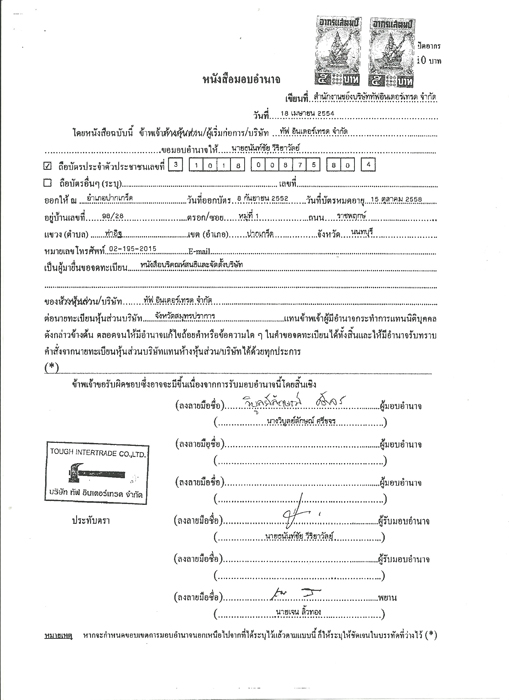 อากรแสตมป์ อากรแสตมป์
๕ บาท ๕ บาท
ปิดอากร
10 บาท
หนังสือมอบอำนาจ
เขียนที่ สำนักงานของบริษัททัฟอินเตอร์เทรด จำกัด
วันที่ 18 เมษายน 2554
โดยหนังสือฉบับนี้ ข้าพเจ้าห้างหุ้นส่วน/ผู้เริ่มก่อการ/บริษัท ทัฟ อินเตอร์เทรด จำกัด
ขอมอบอำนาจให้ นายธนันท์ชัย วีริยาวัลย์
☑ ถือบัตรประจำตัวประชาชนเลขที่ 3 1018 00875 80 4
☐ ถือบัตรอื่นๆ (ระบุ) เลขที่
ออกให้ ณ อำเภอปากเกร็ด วันที่ออกบัตร 8 กันยายน 2552 วันที่บัตรหมดอายุ 15 ตุลาคม 2558
อยู่บ้านเลขที่ 98/28 ตรอก/ซอย หมู่ที่ 1 ถนน ราชพฤกษ์
แขวง (ตำบล) ท่าอิฐ เขต (อำเภอ) ปากเกร็ด จังหวัด นนทบุรี
หมายเลขโทรศัพท์ 02-195-2015 E-mail
เป็นผู้มายื่นขอจดทะเบียน หนังสือบริคณห์สนธิและจัดตั้งบริษัท
ของห้างหุ้นส่วน/บริษัท ทัฟ อินเตอร์เทรด จำกัด
ต่อนายทะเบียนหุ้นส่วนบริษัท จังหวัดสมุทรปราการ แทนข้าพเจ้าผู้มีอำนาจกระทำการแทนนิติบุคคล
ดังกล่าวข้างต้น ตลอดจนให้มีอำนาจแก้ไขถ้อยคำหรือข้อความใด ๆ ในคำขอจดทะเบียนได้ทั้งสิ้นและให้มีอำนาจรับทราบ
คำสั่งจากนายทะเบียนหุ้นส่วนบริษัทแทนห้างหุ้นส่วน/บริษัทได้ด้วยทุกประการ
(*)
ข้าพเจ้าขอรับผิดชอบซึ่งอาจจะมีขึ้นเนื่องจากการรับมอบอำนาจนี้โดยสิ้นเชิง
(ลงลายมือชื่อ) ผู้มอบอำนาจ
(นางวิบูลย์ลักษณ์ ศรีขจร)
(ลงลายมือชื่อ) ผู้มอบอำนาจ
TOUGH INTERTRADE CO.,LTD.
บริษัท ทัฟ อินเตอร์เทรด จำกัด
(ลงลายมือชื่อ) ผู้มอบอำนาจ
ประทับตรา
(ลงลายมือชื่อ) ผู้รับมอบอำนาจ
(นายธนันท์ชัย วีริยาวัลย์)
(ลงลายมือชื่อ) ผู้รับมอบอำนาจ
(ลงลายมือชื่อ) พยาน
(นายเจน ลิ้วทอง)
หมายเหตุ หากจะกำหนดขอบเขตการมอบอำนาจนอกเหนือไปจากที่ได้ระบุไว้แล้วตามแบบนี้ ก็ให้ระบุให้ชัดเจนในบรรทัดที่ว่างไว้ (*)